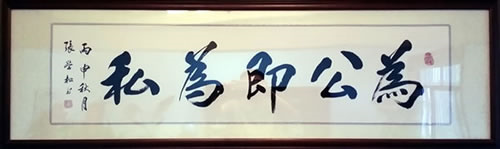 為公即為私
丙申秋月
張學松書